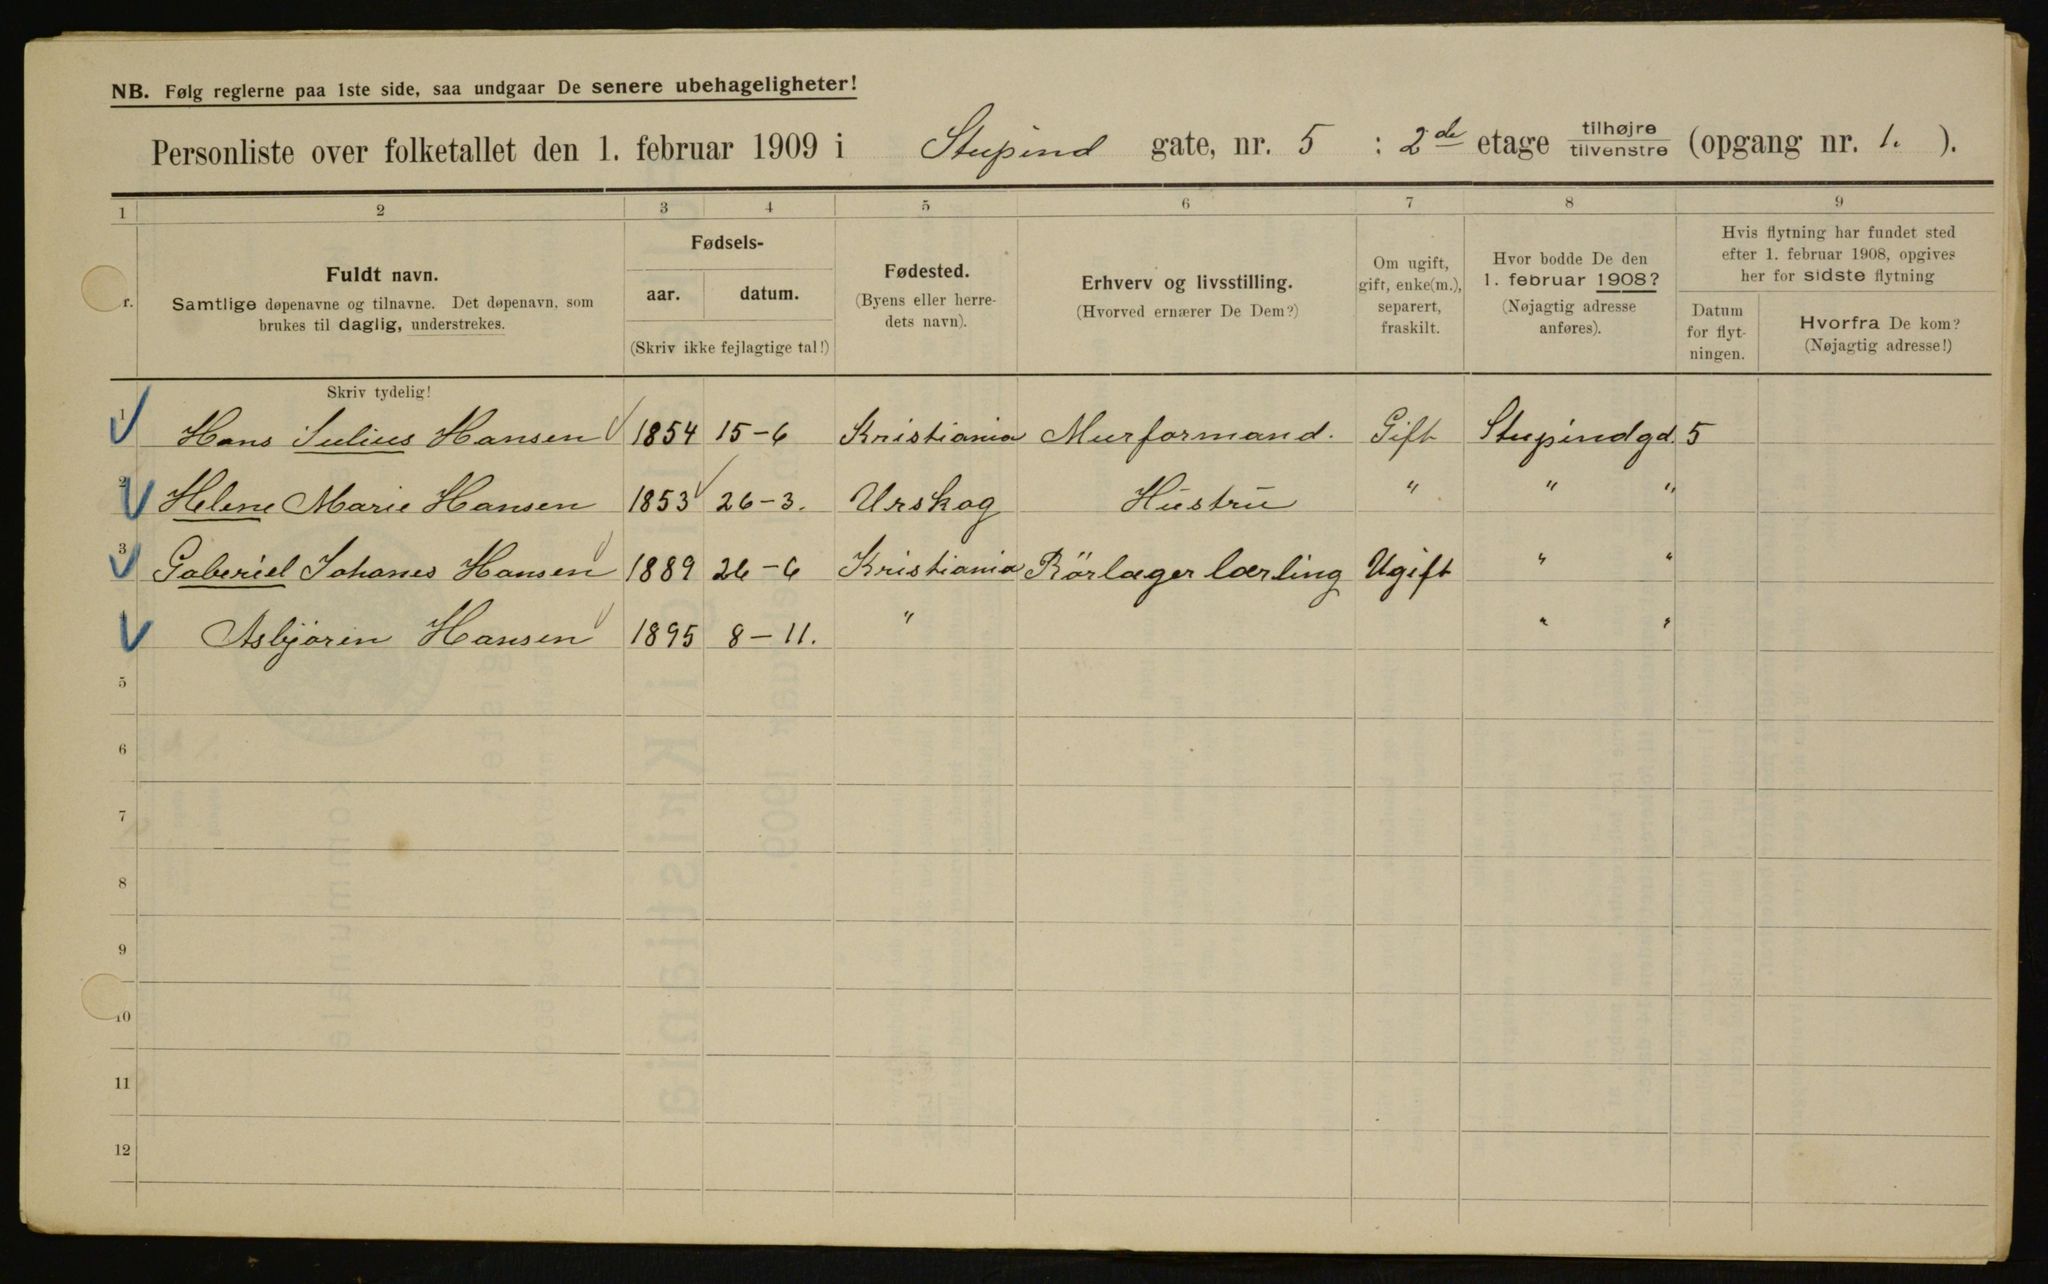 NB. Følg reglerne paa 1ste side, saa undgaar De senere ubehageligheter!
Personliste over folketallet den 1. februar 1909 i Stupind gate, nr. 5 : 2de etage tilhøjre tilvenstre (opgang nr. 1. ).
1 2 3 4 5 6 7 8 9
r.
Fuldt navn.
Samtlige døpenavne og tilnavne. Det døpenavn, som
brukes til daglig, understrekes.
Fødsels-
aar. datum.
(Skriv ikke fejlagtige tal!)
Fødested.
(Byens eller herre-
dets navn).
Erhverv og livsstilling.
(Hvorved ernærer De Dem?)
Om ugift,
gift, enke(m.),
separert,
fraskilt.
Hvor bodde De den
1. februar 1908?
(Nøjagtig adresse
anføres).
Hvis flytning har fundet sted
efter 1. februar 1908, opgives
her for sidste flytning
Datum
for flyt-
ningen.
Hvorfra De kom?
(Nøjagtig adresse!)
Skriv tydelig!
1 Hans Julius Hansen 1854 15-6 Kristiania Murformand. Gift Stupindgd. 5
2 Helene Marie Hansen 1853 26-3. Urskog Hustru " " "
3 Gaberiel Johanes Hansen 1889 26-6 Kristiania Rörlæger lærling Ugift " "
Asbjörin Hansen 1895 8-11. " " "
5
6
7
8
9
10
11
12